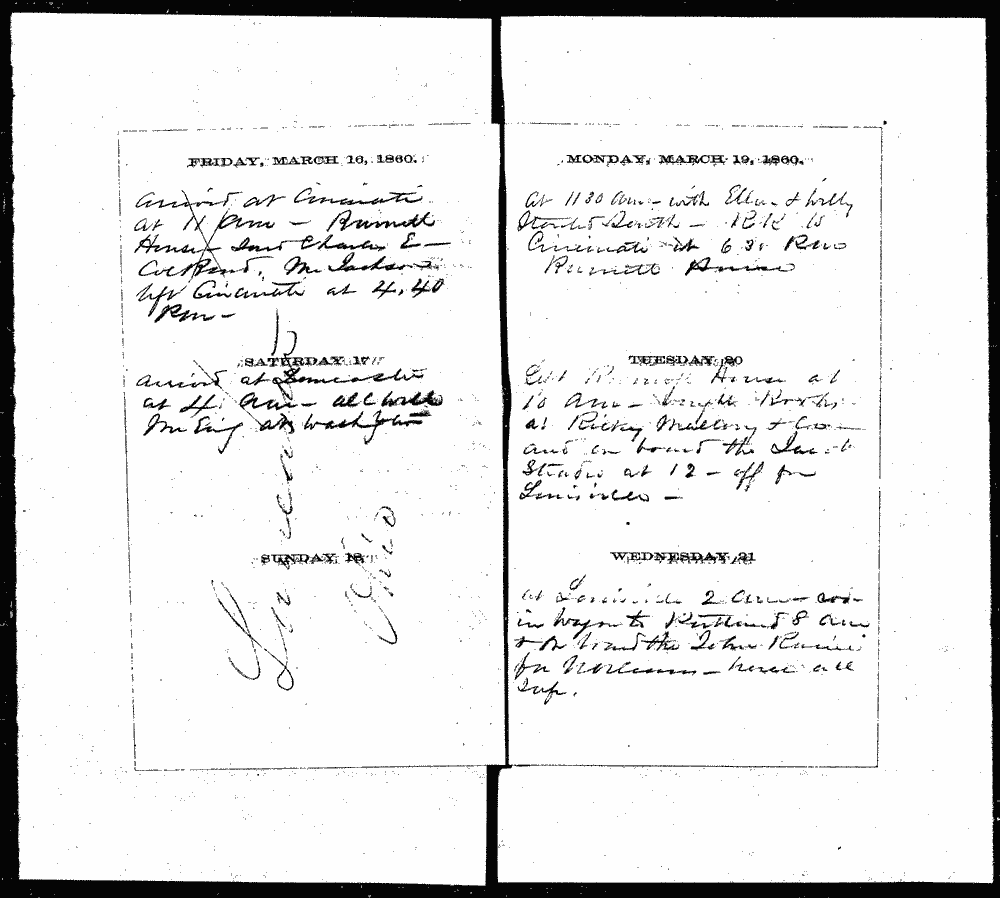 FRIDAY, MARCH 16, 1860.
arrived at Cincinnati
at 11 am – Burnett
House – Saw Charles E –
Col Mr Jackson
left Cincinnati at 4.40
Pm –
SATURDAY 17
arrived at Lancaster
at 4 am – all well
Mr Ewing at Washington
SUNDAY 18
Lancaster
Ohio
MONDAY, MARCH 19, 1860.
at 11 30 am – with Ellen & Willy
Started South – RR to
Cincinnati at 6 30 Pm
Burnett House
TUESDAY 20
Left House at
10 am – bought Books
at Rickey Mallory & Co –
and on board the Jacob
Strader at 12 – off for
Louisville –
WEDNESDAY 21
at Louisville 2 am –
in wagon to Portland 8 am
& on board the John Raine
for N Orleans – horse all
safe.